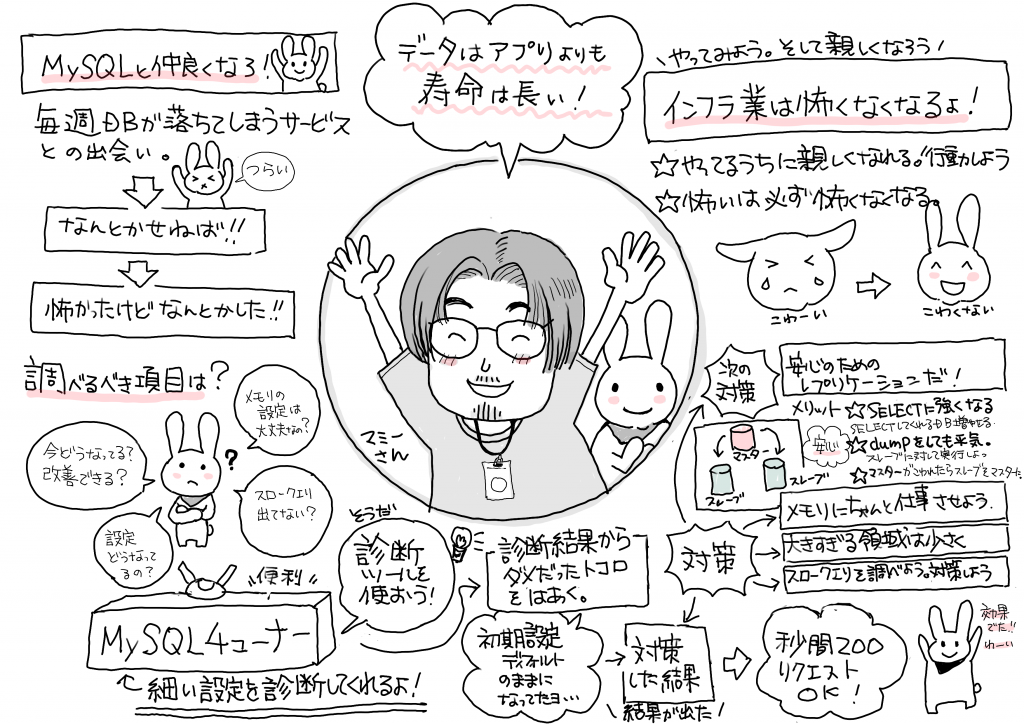 MySQLと仲良くなろ!
毎週DBが落ちてしまうサービス
との出会い。
つらい
なんとかせねば!!
怖かったけどなんとかした!!
調べるべき項目は?
メモリの
設定は
大丈夫なの?
今どうなってる?
改善できる?
?
スロークエリ
出てない?
設定
どうなって
るの?
便利
MySQLチューナー
細い設定を診断してくれるよ!
データはアプリよりも
寿命は長い!
マミー
さん
そうだ
診断
ツールを
使おう!
診断結果から
ダメだったトコロ
をはあく。
初期設定
ディフォルト
のままに
なってたヨ...
対策
した結果
結果が出た
秒間200
リクエスト
OK!
効果
でた!!
わーい
やってみよう。そして親しくなろう
インフラ業は怖くなくなるよ!
☆やってるうちに親しくなれる。行動しよう
☆怖いは必ず怖くなくなる。
こわーい
こわくない
次の
対策
安心のための
レプリケーションだ!
メリット ☆SELECTに強くなる
SELECTしてくれるDB増やせる
安心
☆dumpをしても平気。
スレーブに対して実行しよっ
☆マスターがこわれたらスレーブをマスターに
マスター
スレーブ
スレーブ
対策
メモリにちゃんと仕事させよう.
大きすぎる領域は小さく
スロークエリを調べよう。対策しよう